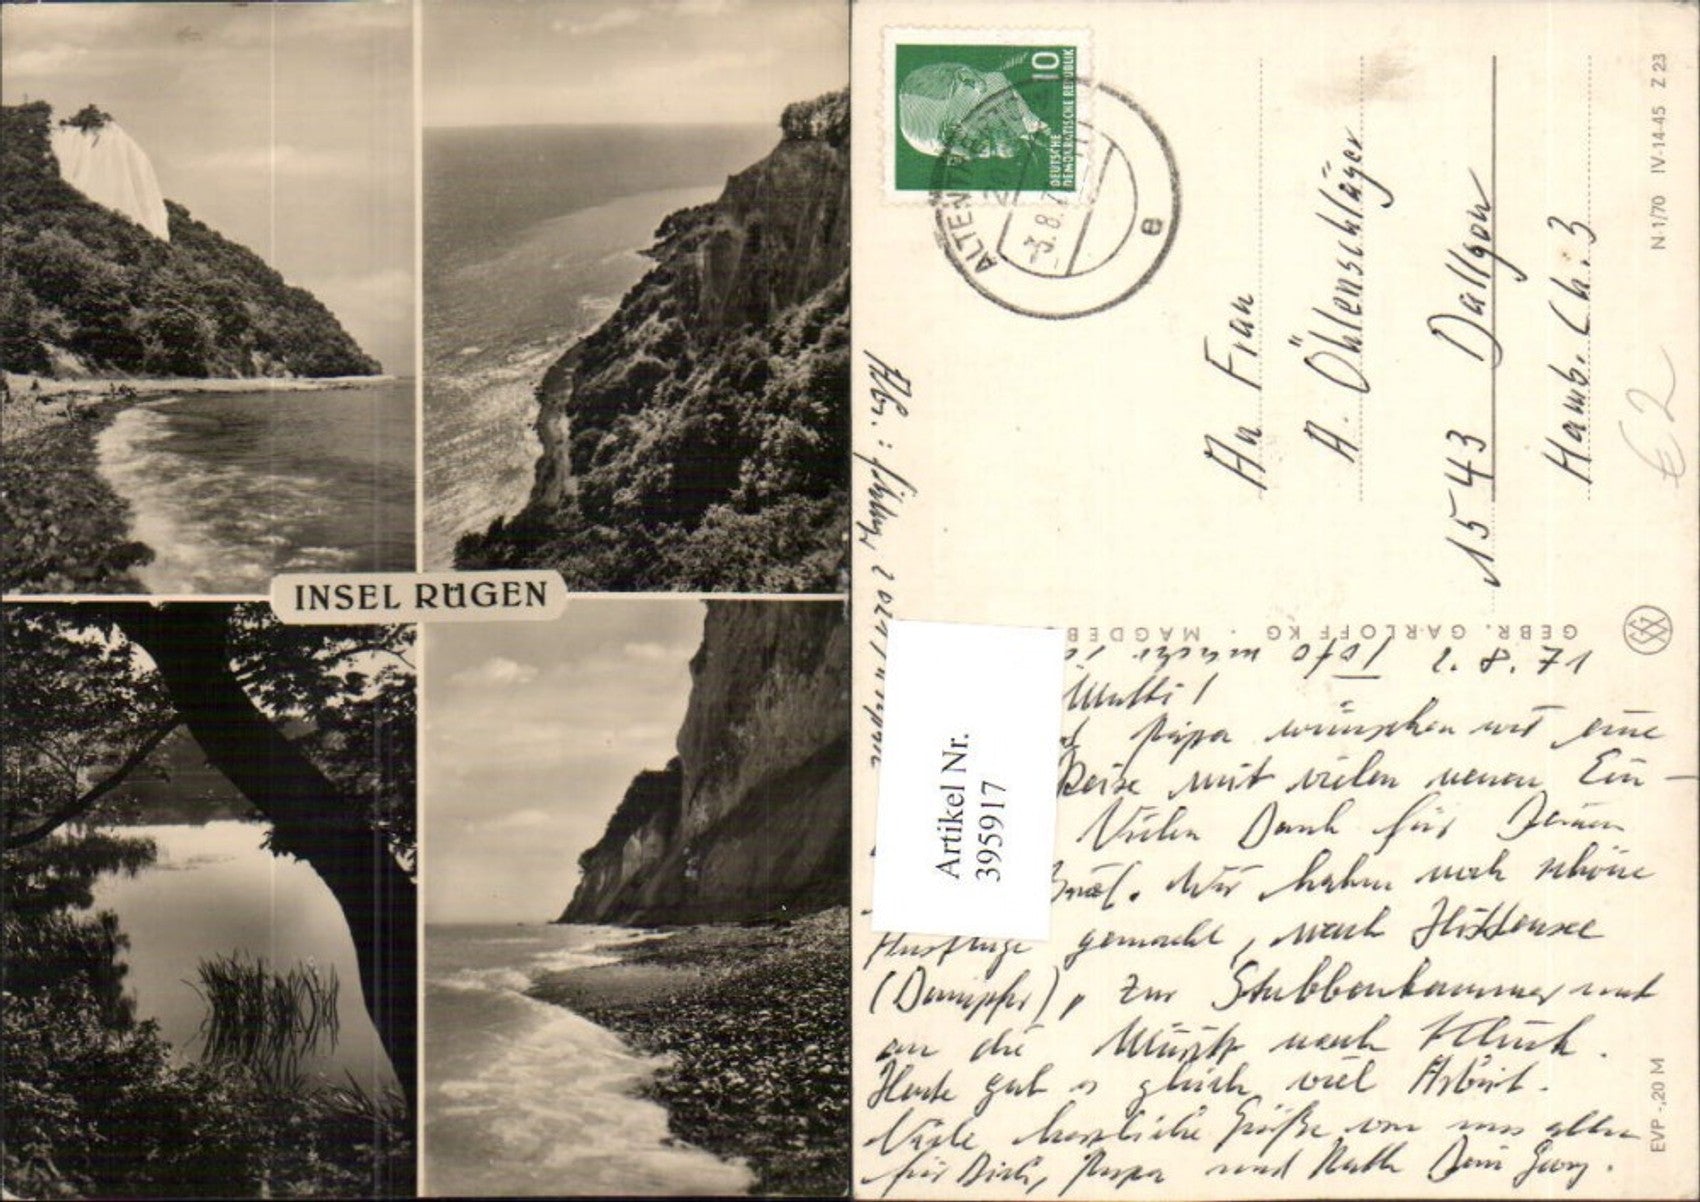 INSEL RÜGEN
10
DEUTSCHE
DEMOKRATISCHE REPUBLIK
ALTEN
-3.8.7
e
An Frau
A. Öhlenschläger
1543 Dallgow
Hamb. Ch. 3
N 1/70 IV-14-45 Z 23
€ 2
GEBR. GARLOFF KG · MAGDEB
EVP -,20 M
Artikel Nr.
395917
Abs.:
17.8.
Mutti!
Papa wünschen wir eine
Reise mit vielen neuen Ein-
Vielen Dank für Deinen
Wir haben noch schöne
Ausflüge gemacht, nach Hiddensee
(Dampfer), zur Stubbenkammer und
an die nach
Heute gab es gleich viel Arbeit.
Viele herzliche Grüße von uns allen
für Dich, Papa und Dein Georg.